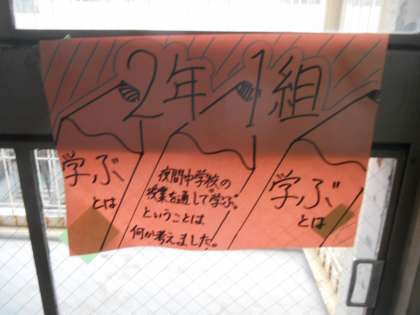 2年1組
学ぶ
とは
夜間中学校の
授業を通して学ぶ。
ということは
何か考えました。
学ぶ
とは